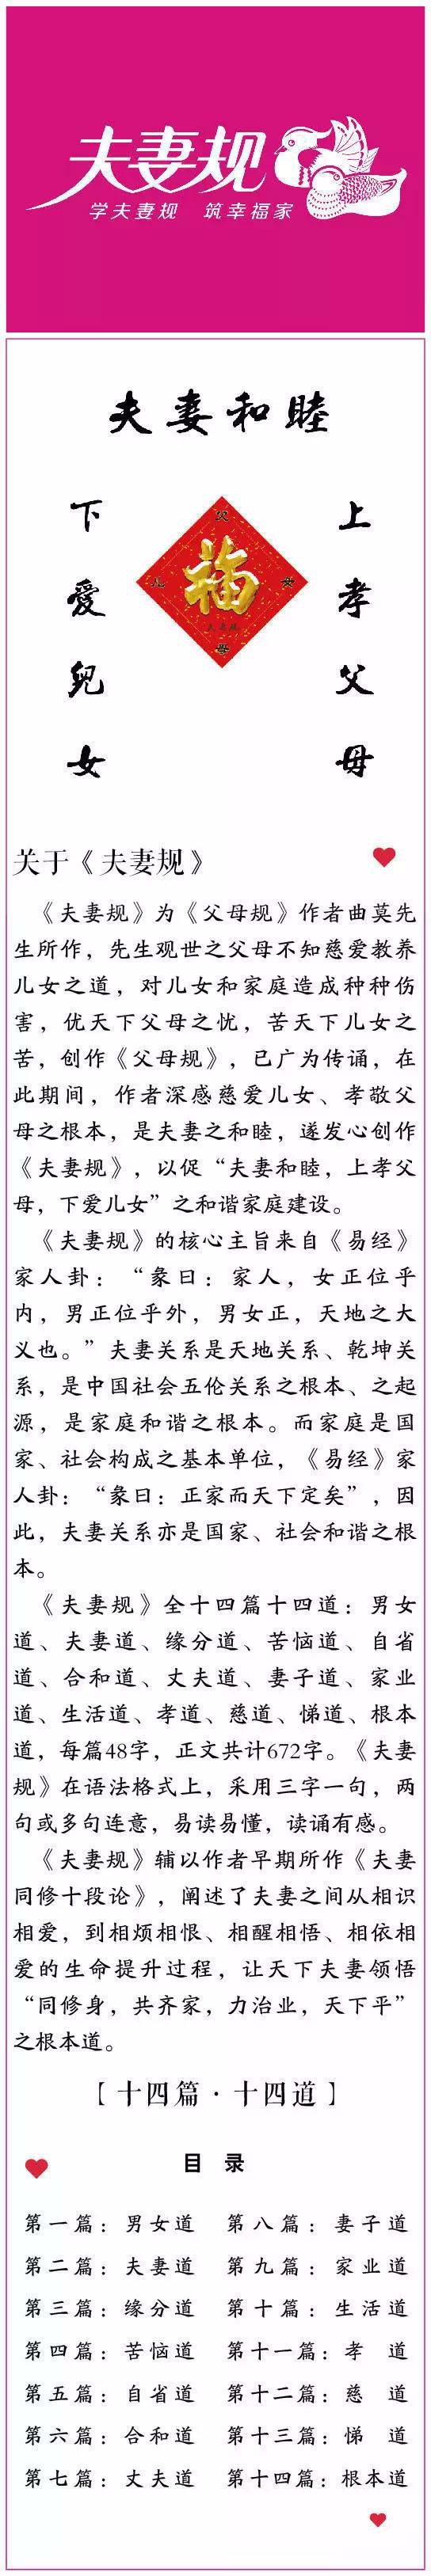 夫妻规
学夫妻规 筑幸福家
夫妻和睦
上孝父母
下爱儿女
父
儿 女
福
夫妻规
母
关于《夫妻规》
《夫妻规》为《父母规》作者曲莫先
生所作，先生观世之父母不知慈爱教养
儿女之道，对儿女和家庭造成种种伤
害，优天下父母之忧，苦天下儿女之
苦，创作《父母规》，已广为传诵，在
此期间，作者深感慈爱儿女、孝敬父
母之根本，是夫妻之和睦，遂发心创作
《夫妻规》，以促“夫妻和睦，上孝父
母，下爱儿女”之和谐家庭建设。
《夫妻规》的核心主旨来自《易经》
家人卦：“彖曰：家人，女正位乎
内，男正位乎外，男女正，天地之大
义也。”夫妻关系是天地关系、乾坤关
系，是中国社会五伦关系之根本、之起
源，是家庭和谐之根本。而家庭是国
家、社会构成之基本单位，《易经》家
人卦：“彖曰：正家而天下定矣”，因
此，夫妻关系亦是国家、社会和谐之根
本。
《夫妻规》全十四篇十四道：男女
道、夫妻道、缘分道、苦恼道、自省
道、合和道、丈夫道、妻子道、家业
道、生活道、孝道、慈道、悌道、根本
道，每篇48字，正文共计672字。《夫妻
规》在语法格式上，采用三字一句，两
句或多句连意，易读易懂，读诵有感。
《夫妻规》辅以作者早期所作《夫妻
同修十段论》，阐述了夫妻之间从相识
相爱，到相烦相恨、相醒相悟、相依相
爱的生命提升过程，让天下夫妻领悟
“同修身，共齐家，力治业，天下平”
之根本道。
【十四篇·十四道】
目 录
第一篇：男女道
第二篇：夫妻道
第三篇：缘分道
第四篇：苦恼道
第五篇：自省道
第六篇：合和道
第七篇：丈夫道
第八篇：妻子道
第九篇：家业道
第十篇：生活道
第十一篇：孝 道
第十二篇：慈 道
第十三篇：悌 道
第十四篇：根本道